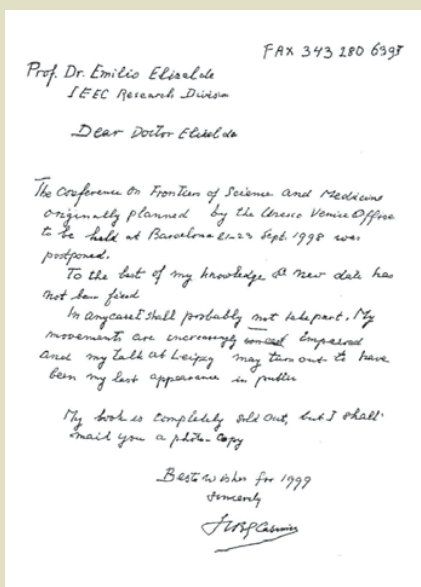 FAX 343 280 6397
Prof. Dr. Emilio Elizalde
IEEC Research Division
Dear Doctor Elizalde
The Conference on Frontiers of Science and Medicine
originally planned by the Unesco Venice Office
to be held at Barcelona 21-23 Sept. 1998 was
postponed.
To the best of my knowledge a new date has
not been fixed
In any case I shall probably not take part. My
movements are increasingly impaired
and my talk at Leipzig may turn out to have
been my last appearance in public
My book is completely sold out, but I shall
mail you a photo-copy
Best wishes for 1999
Sincerely
HBG Casimir